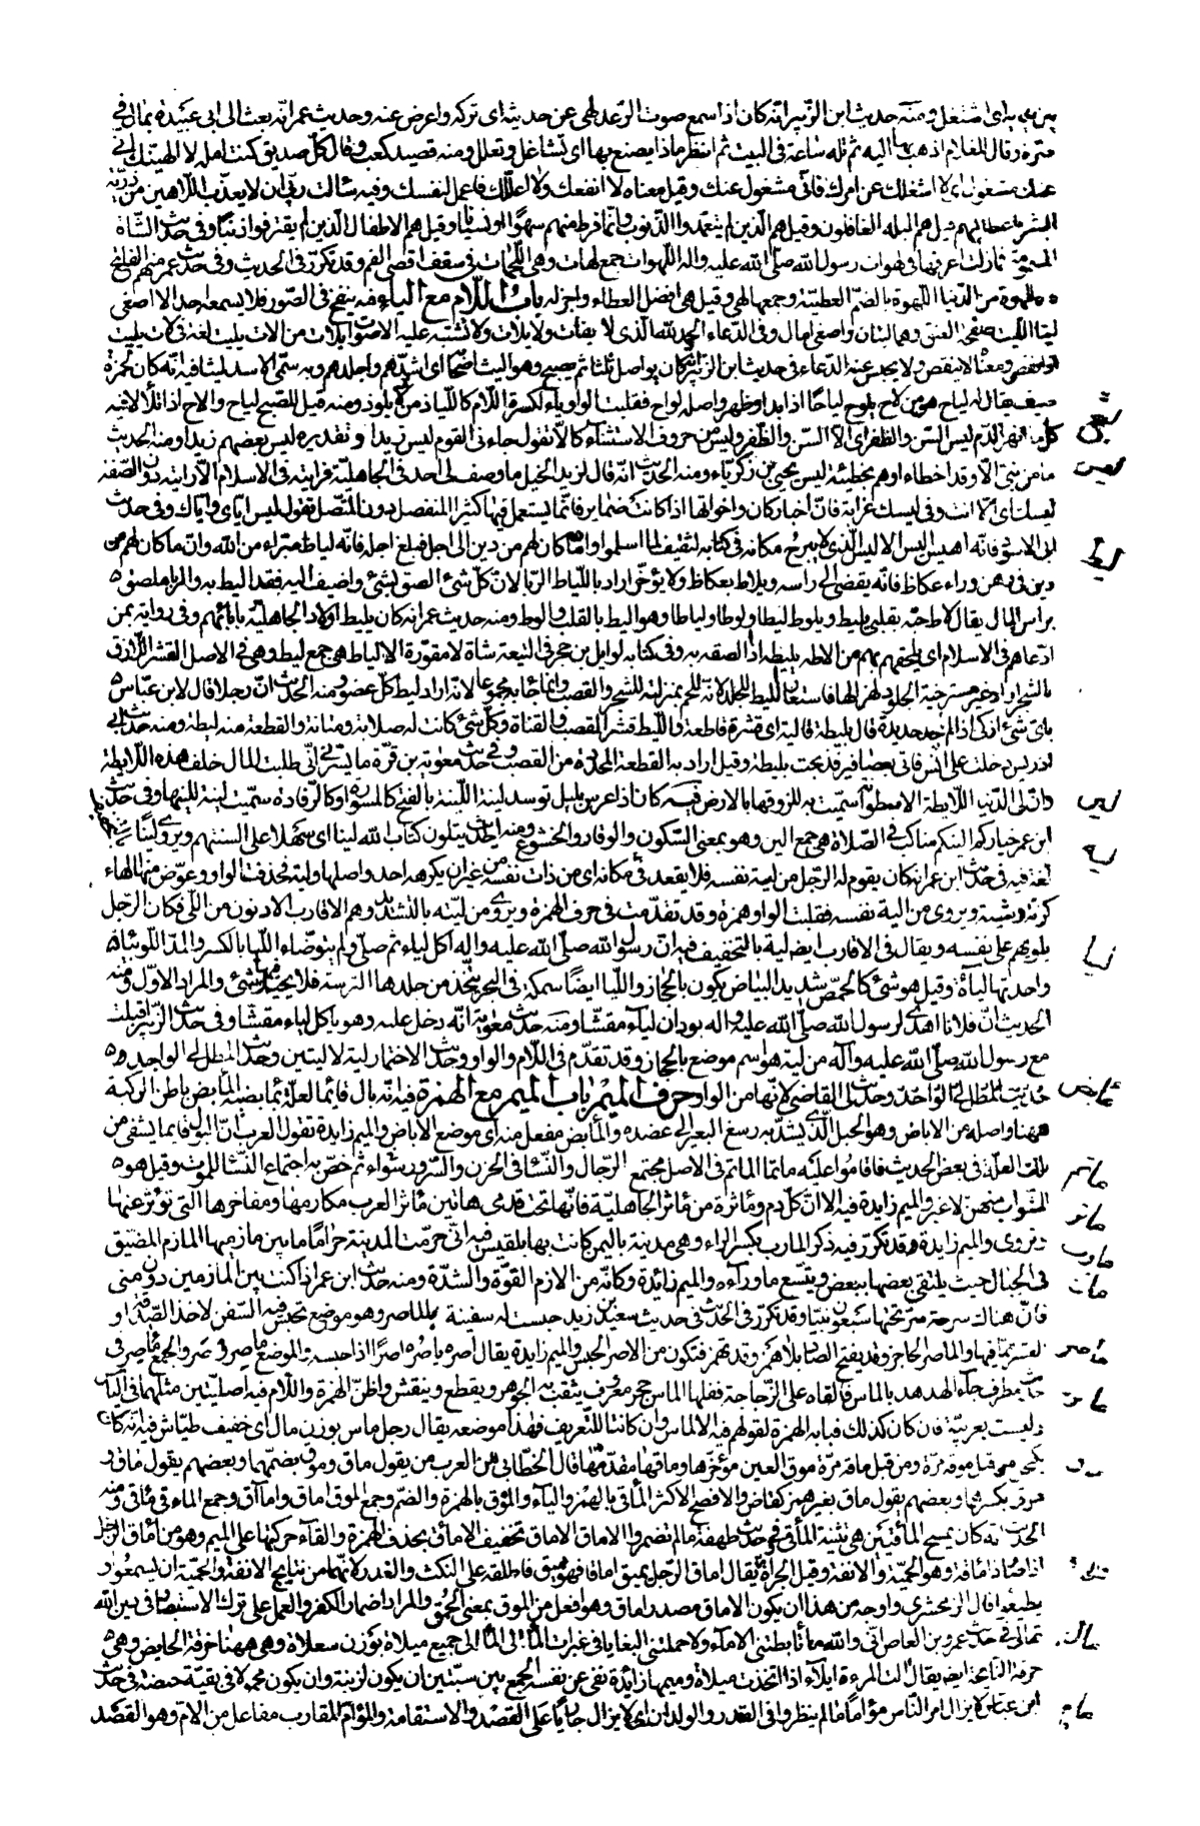 بين يديه اى اشتغل ومنه حديث ابن الزبير انه كان اذا سمع صوت الرعد لهى عن حديثه اى تركه واعرض عنه وحديث عمر انه بعث الى ابى عبيدة بمال في
صرة وقال للغلام اذهب بها اليه ثم تله ساعة فى البيت ثم انظر ماذا يصنع بها اى تشاغل وتعلل ومنه قصيد كعب وقال كل صديق كنت امله لا الهينك انى
عنك مشغول اى لا اشغلك عن امرك فانى مشغول عنك وقيل معناه لا انفعك ولا اعللك فاعمل لنفسك وفيه سالت ربى ان لا يعذب اللاهين من ذرية
البشر فاعطانيهم قيل هم البله الغافلون وقيل هم الذين لم يتعمدوا الذنوب وانما فرط منهم سهوا او نسيانا وقيل هم الاطفال الذين لم يقترفوا ذنبا وفى حديث الشاة
المسمومة فما زلت اعرفها فى لهوات رسول الله صلى الله عليه واله اللهوات جمع لهات وهى اللحمات فى سقف اقصى الفم وقد تكرر فى الحديث وفى حديث عمر منهم الفاتح
فاه للهوة من الدنيا اللهوة بالضم العطية وجمعها لهى وقيل هى افضل العطاء واجزله باب اللام مع الياء فيه ينفخ فى الصور فلا يسمعه احد الا اصغى
ليتا الليت صفحة العنق وهما ليتان واصغى امال وفى الدعاء الحمد لله الذى لا يفات ولا يلات ولا تشتبه عليه الاصوات يلات من الات يليت لغة فى لات يليت
اذا نقص ومعناه لا ينقص ولا يحبس عنه الدعاء فى حديث ابن الزبير انه كان يواصل ثلثا ثم يصبح وهو اليث اصحابه اى اشدهم واجلدهم وبه سمى الاسد ليثا فيه انه كان لحمزة
سيف يقال له لياح هو من لاح يلوح لياحا اذا بدا وظهر واصله لواح فقلبت الواو ياء لكسرة اللام كاللياذ من لاذ يلوذ ومنه قيل للصبح لياح والاح اذا تلألأ فيه
كل ما انهر الدم ليس السن والظفر اى الا السن والظفر وليس من حروف الاستثناء كالا تقول جاءنى القوم ليس زيدا وتقديره ليس بعضهم زيدا ومنه الحديث
ما من نبى الا وقد اخطاء او هم بخطيئة ليس يحيى بن زكرياء ومنه الحديث انه قال لزيد الخيل ما وصف لى احد فى الجاهلية فرايته فى الاسلام الا رايته دون الصفة
ليسك اى الا انت وفى ليسك غرابة فان اخبار كان واخواتها اذا كانت ضماير فانما يستعمل فيها كثيرا المنفصل دون المتصل تقول ليس اياى واياك وفى حديث
ابى الاسود فانه اهيس اليس الاليس الذى لا يبرح مكانه فى كتابه لثقيف لما اسلموا وان ما كان لهم من دين الى اجل فبلغ اجله فانه لياط مبراء من الله وان ما كان لهم من
دين فى رهن وراء عكاظ فانه يقضى الى راسه ويلاط بعكاظ ولا يؤخر اراد باللياط الربا لان كل شئ الصق بشئ واضيف اليه فقد اليط به والربا ملصق
براس المال يقال لاط حبه بقلبى يليط ويلوط ليطا ولوطا ولياطا وهو اليط بالقلب والوط ومنه حديث عمر انه كان يليط اولاد الجاهلية بابائهم وفى رواية بمن
ادعاهم فى الاسلام اى يلحقهم بهم من الاطه يليطه اذا الصقه به وفى كتابه لوايل بن حجر فى التيعة شاة لا مقورة الالياط هى جمع ليط وهى فى الاصل القشر اللازق
بالشجر اراد غير مسترخية الجلود لهزالها فاستعار الليط للجلد لانه للحم بمنزلته للشجر والقصب وانما جاء به مجموعا لانه اراد ليط كل عضو ومنه الحديث ان رجلا قال لابن عباس
باى شئ اذكى اذا لم اجد حديدة قال بليطة فالية اى قشرة قاطعة والليط قشر القصب والقناة وكل شئ كانت له صلابة ومتانة والقطعة منه ليطة ومنه حديث ابى
ادريس دخلت على انس فاتى بعصافير فذبحت بليطة وقيل اراد به القطعة المحددة من القصب وفى حديث معوية بن قرة ما يسرنى انى طلبت المال خلف هذه اللايطة
وان لى الدنيا اللايطة الاسطوانة سميت به للزوقها بالارض فيه كان اذا عرس بليل توسد لينة اللينة بالفتح كالمسورة او كالرفادة سميت لينة للينها وفى حديث
ابن عمر خياركم الينكم مناكب فى الصلاة هى جمع الين وهو بمعنى السكون والوقار والخشوع ومنه الحديث يتلون كتاب الله لينا اى سهلا على السنتهم ويروى لينا
لغة فيه فى حديث ابن عمر انه كان يقوم له الرجل من لية نفسه فلا يقعد فى مكانه اى من ذات نفسه من غير ان يكرهه احد واصلها ولية فحذفت الواو وعوض منها الهاء
كزنة وشية ويروى من الية نفسه فقلبت الواو همزة وقد تقدمت فى حرف الهمزة ويروى من ليته بالتشديد وهم الاقارب الادنون من اللى فكان الرجل
يلويهم على نفسه ويقال فى الاقارب ايضا لية بالتخفيف فيه ان رسول الله صلى الله عليه واله اكل لياء ثم صلى ولم يتوضاء اللياء بالكسر والمد اللوبياء
واحدتها لياءة وقيل هو شئ كالحمص شديد البياض يكون بالحجاز واللياء ايضا سمكة فى البحر يتخذ من جلدها الترسة فلا يحيك فيها شئ والمراد الاول ومنه
الحديث ان فلانا اهدى لرسول الله صلى الله عليه واله بودان لياء مقشا ومنه حديث معوية انه دخل عليه وهو ياكل لياء مقشا وفى حديث الزبير اقبلت
مع رسول الله صلى الله عليه وآله من لية هو اسم موضع بالحجاز وقد تقدم فى اللام والواو وحديث الاختمار لية لا ليتين وحديث المطل لى الواجد
حديث المطل لى الواجد وحديث لى القاضى لانها من الواو حرف الميم باب الميم مع الهمزة فيه انه بال قائما لعلة بمابضيه المابض باطن الركبة
ههنا واصله من الاباض وهو الحبل الذى يشد به رسغ البعير الى عضده والمابض مفعل منه اى موضع الاباض والميم زايدة تقول العرب ان البول قايما يشفى من
تلك العلة فى بعض الحديث فاقاموا عليه ماتما الماتم فى الاصل مجتمع الرجال والنساء فى الحزن والسرور ثم خص به اجتماع النساء للموت وقيل هو
الشواب منهن لا غير والميم زايدة فيه الا ان كل دم ومأثرة من مآثر الجاهلية فانها تحت قدمى هاتين مآثر العرب مكارمها ومفاخرها التى تؤثر عنها
وتروى والميم زايدة وقد تكرر فيه ذكر المارب بكسر الراء وهى مدينة باليمن كانت بها بلقيس فيه انى حرمت المدينة حراما ما بين مازميها المازم المضيق
فى الجبال حيث يلتقى بعضها ببعض ويتسع ما ورآءه والميم زائدة وكانه من الازم القوة والشدة ومنه حديث ابن عمر اذا كنت بين المازمين دون منى
فان هناك سرحة سر تحتها سبعون نبيا وقد تكرر فى الحديث فى حديث سعيد بن زيد حبست له سفينة بالماصر وهو موضع تحبس فيه السفن لاخذ الصدقة او
العشر مما فيها والماصر الحاجز وقد يفتح الصاد بلا همز وقد تهمز فتكون من الاصر الحبس والميم زايدة يقال اصره ياصره اصرا اذا حبسه والموضع ماصر وماصر والجمع مآصر فى
حديث مطرف جاء الهدهد بالماس فالقاه على الزجاجة ففلقها الماس حجر معروف يثقب به الجوهر ويقطع وينقش واظن الهمزة واللام فيه اصليتين مثلهما فى الياس
وليست بعربية فان كان كذلك فبابه الهمزة لقولهم فيه الالماس وان كانتا للتعريف فهذا موضعه يقال رجل ماس بوزن مال اى خفيف طياش فيه انه كان
يكتحل من قبل موقه مرة ومن قبل ماقه مرة موق العين مؤخرها وماقها مقدمها قال الخطابى من العرب من يقول ماق وموق بضمهما وبعضهم يقول ماق و
موق بكسرهما وبعضهم يقول ماق بغير همز كقاض والافصح الاكثر المأقى بالهمز والياء والمؤق بالهمزة والضم وجمع المؤق اماق وامآق وجمع المأقى مآقى ومنه
الحديث انه كان يمسح المأقيين هى تثنية المأقى فى حديث طهفة ما لم تضمروا الاماق الاماق تخفيف الامآق بحذف الهمزة والقاء حركتها على الميم وهو من امأق الرجل
اذا صار ذا مأقة وهو الحمية والانفة وقيل الجرأة يقال اماق الرجل يميق اماقا فهو مميق فاطلقه على النكث والغدر لانهما من نتايج الانفة والحمية ان يسمعوا و
يطيعوا قال الزمخشرى واوجه من هذا ان يكون الاماق مصدر اماق وهو افعل من الموق بمعنى الحمق والمراد اضمار الكفر والعمل على ترك الاستبصار فى دين الله
تعالى فى حديث عمرو بن العاص انى والله ما تأبطتنى الامآء ولا حملتنى البغايا فى غبرات المآلى المآلى جميع ميلاة بوزن سعلاة وهى ههنا خرقة الحايض وهى
خرقة النايحة ايضا يقال الت المرءة ايلاء اذا اتخذت ميلاة وميمها زايدة نفى عن نفسه الجمع بين سبتين ان يكون لزنية وان يكون محمولا فى بقية حيضة فى حديث
ابن عباس لا يزال امر الناس مؤاما ما لم ينظروا فى القدر والولدان اى لا يزال جاريا على القصد والاستقامة والمؤام المقارب مفاعل من الام وهو القصد
ليس
ليط
لين
ليه
ليا
مابض
ماتم
ماثر
مارب
ماصر
ماس
موق
مال
مام